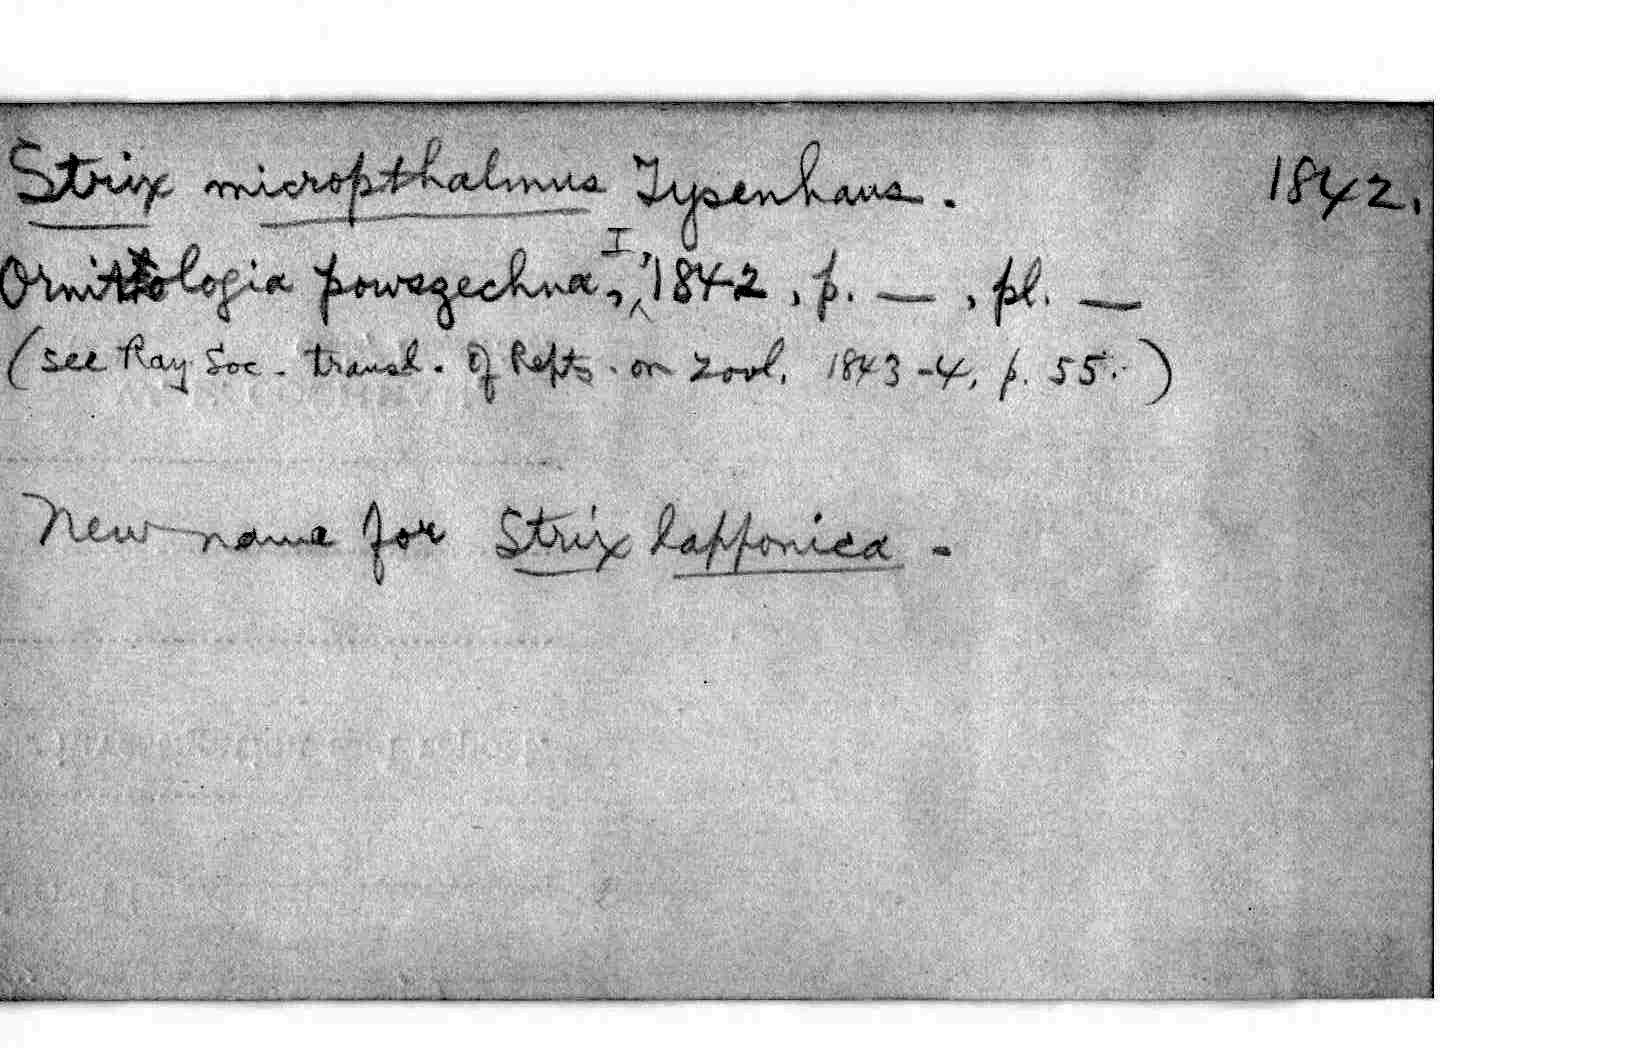 Strix micropthalmus Tysenhaus. 1842.
Ornitologia powszechna, I, 1842, p. — , pl. —
(see Ray Soc. transl. of Repts. on Zool. 1843-4, p. 55.)
New name for Strix lapponica -